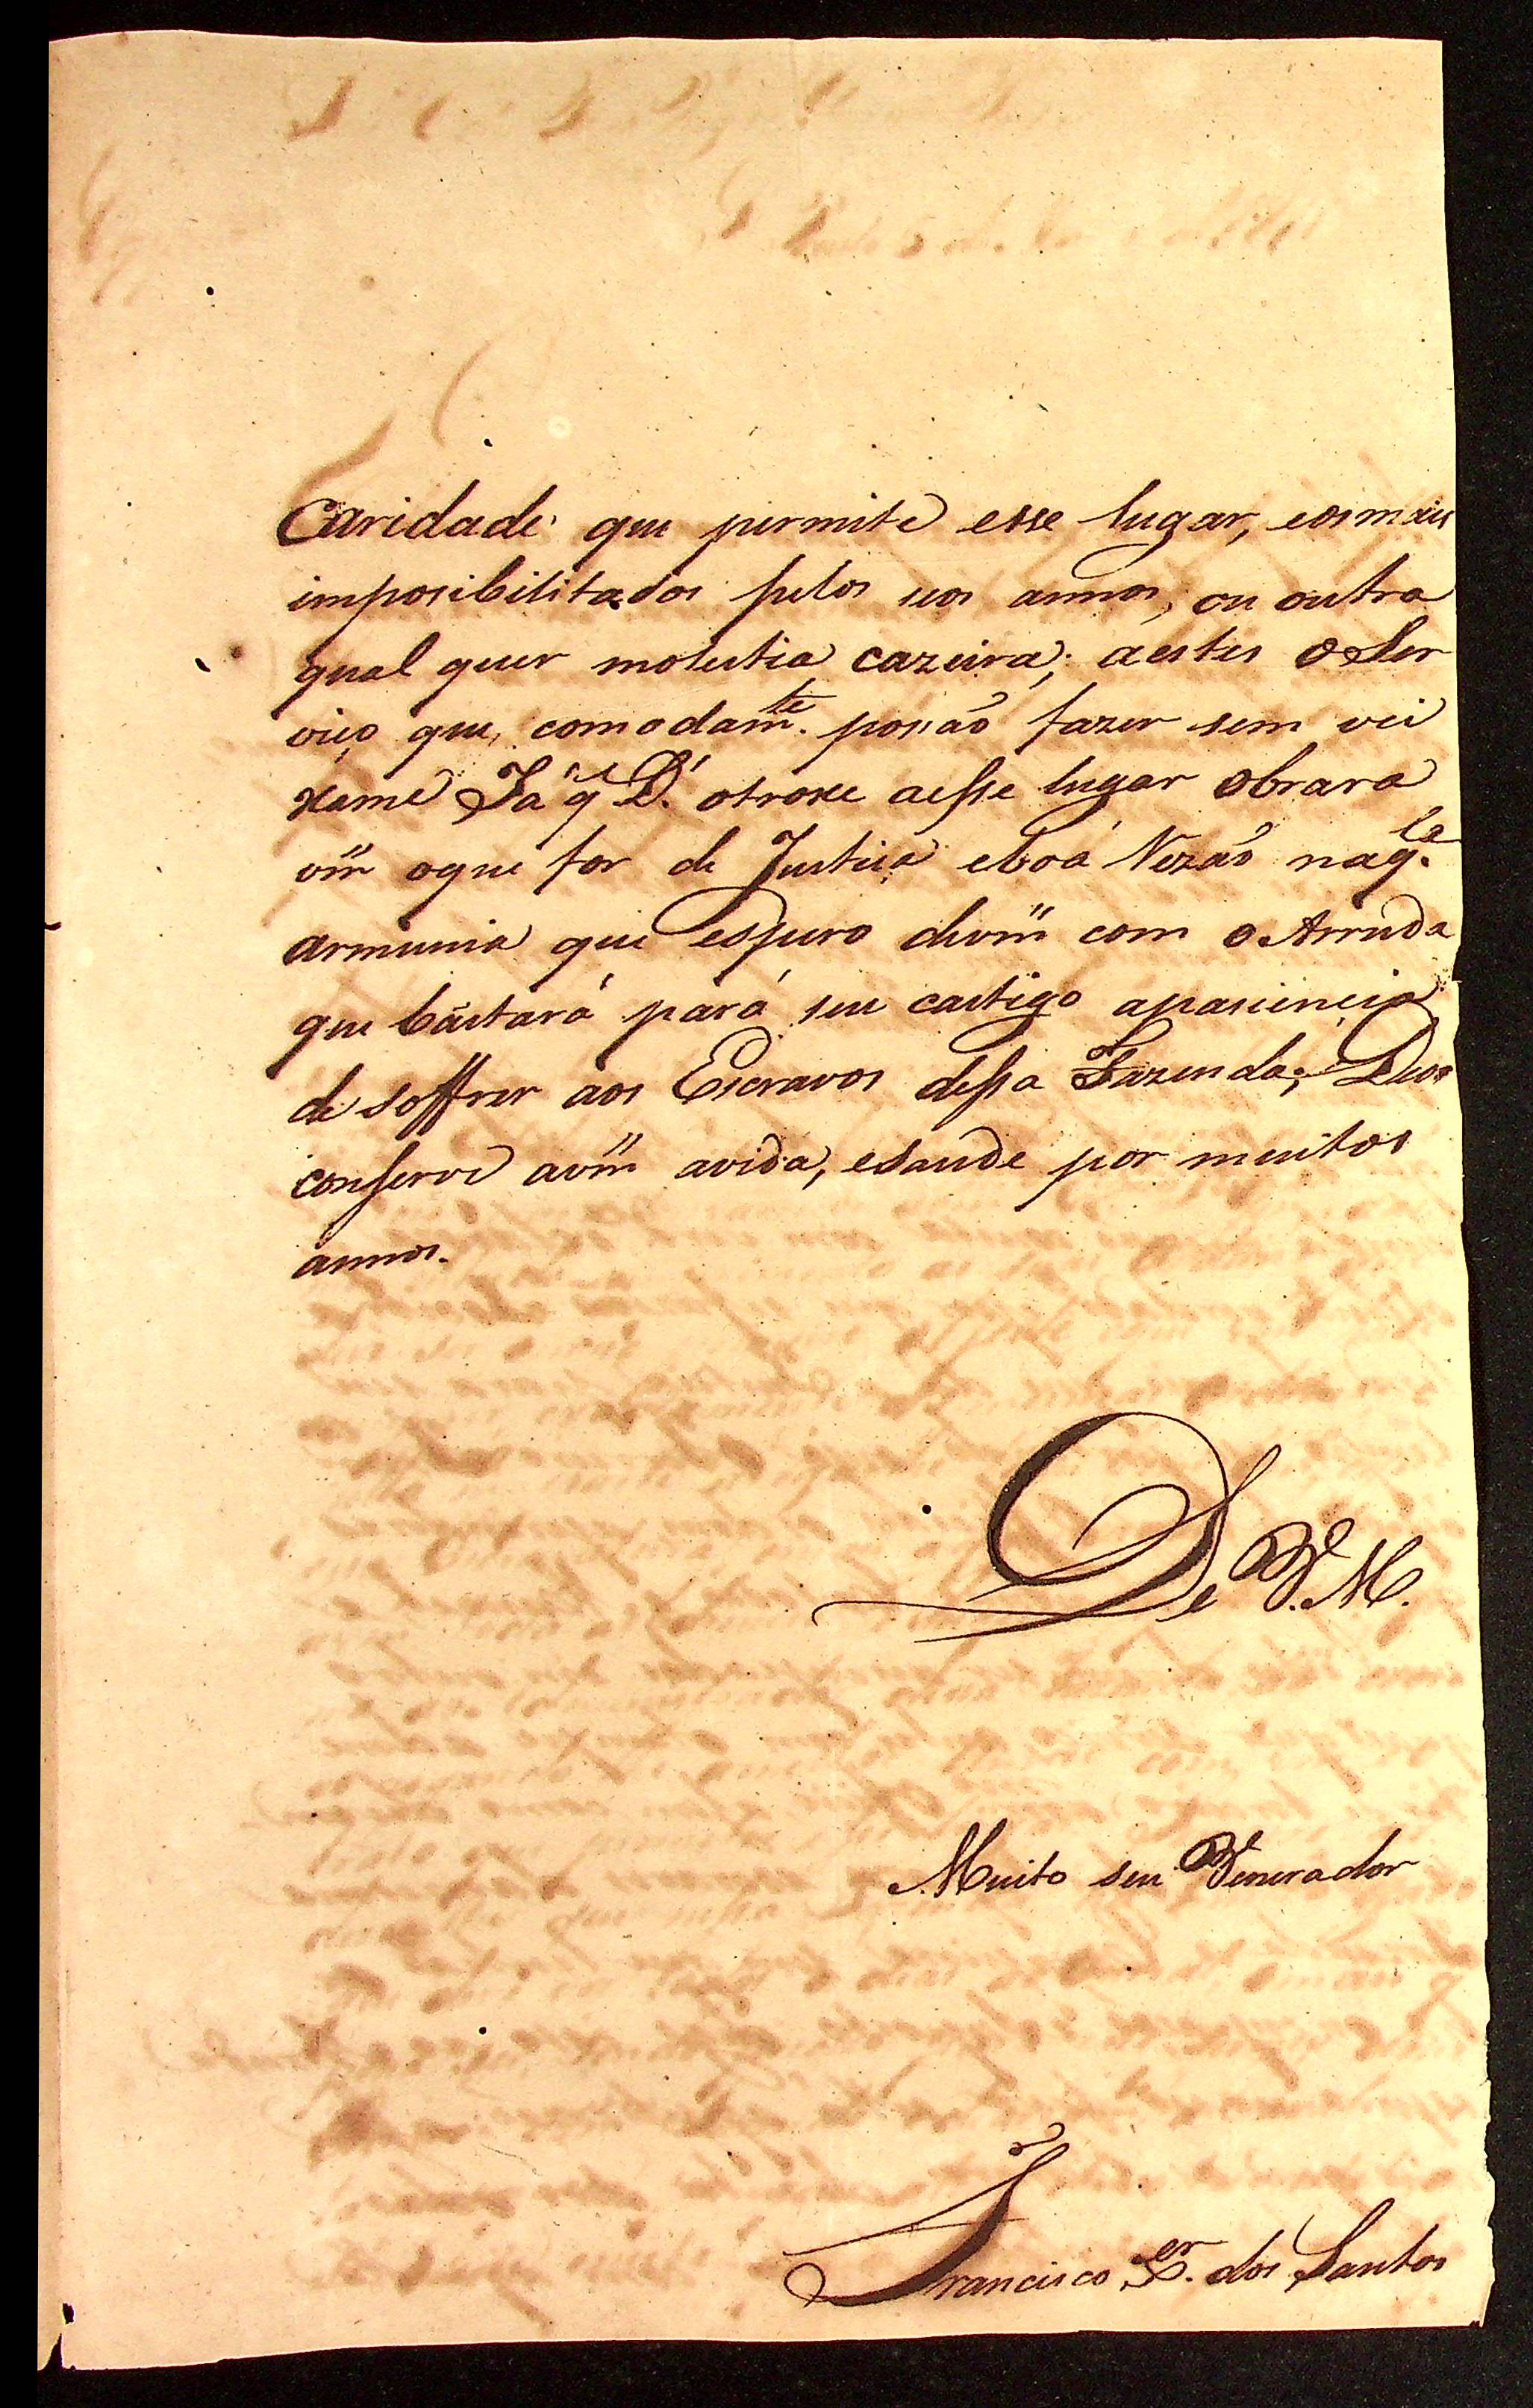 Caridade que permite esse lugar, eosmais
imposibilitados pelos seos annos, ou outra
qual quer molestia cazeira; aestes oSer
viço que, comodamte. posaõ fazer sem vei
xame Já q D.s otroxe aesse lugar obrara
vm̃ oque for de Justiça eboa Rezaõ naqla.
armunia que espero devm̃ com oArruda
que bástará pará seu castigo apasiencia
de soffrer aos Escravos dessa Fazenda; Deos
conserve avm̃ avida, esaude por muitos
annos.
De V.M.
Muito seu Venerador
Francisco Xer. dos Santos